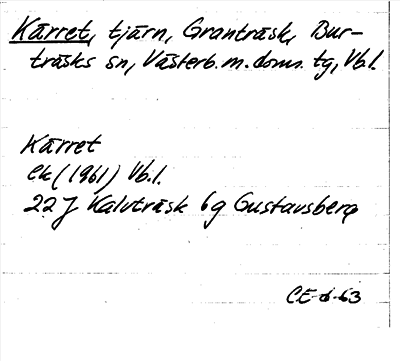 Kärret, tjärn, Granträsk, Bur-
träsks sn, Västerb. m. doms. tg, Vb.l.
Kärret
ek (1961) Vb.l.
22 J Kalvträsk 6g Gustavsberg
CE-d-63